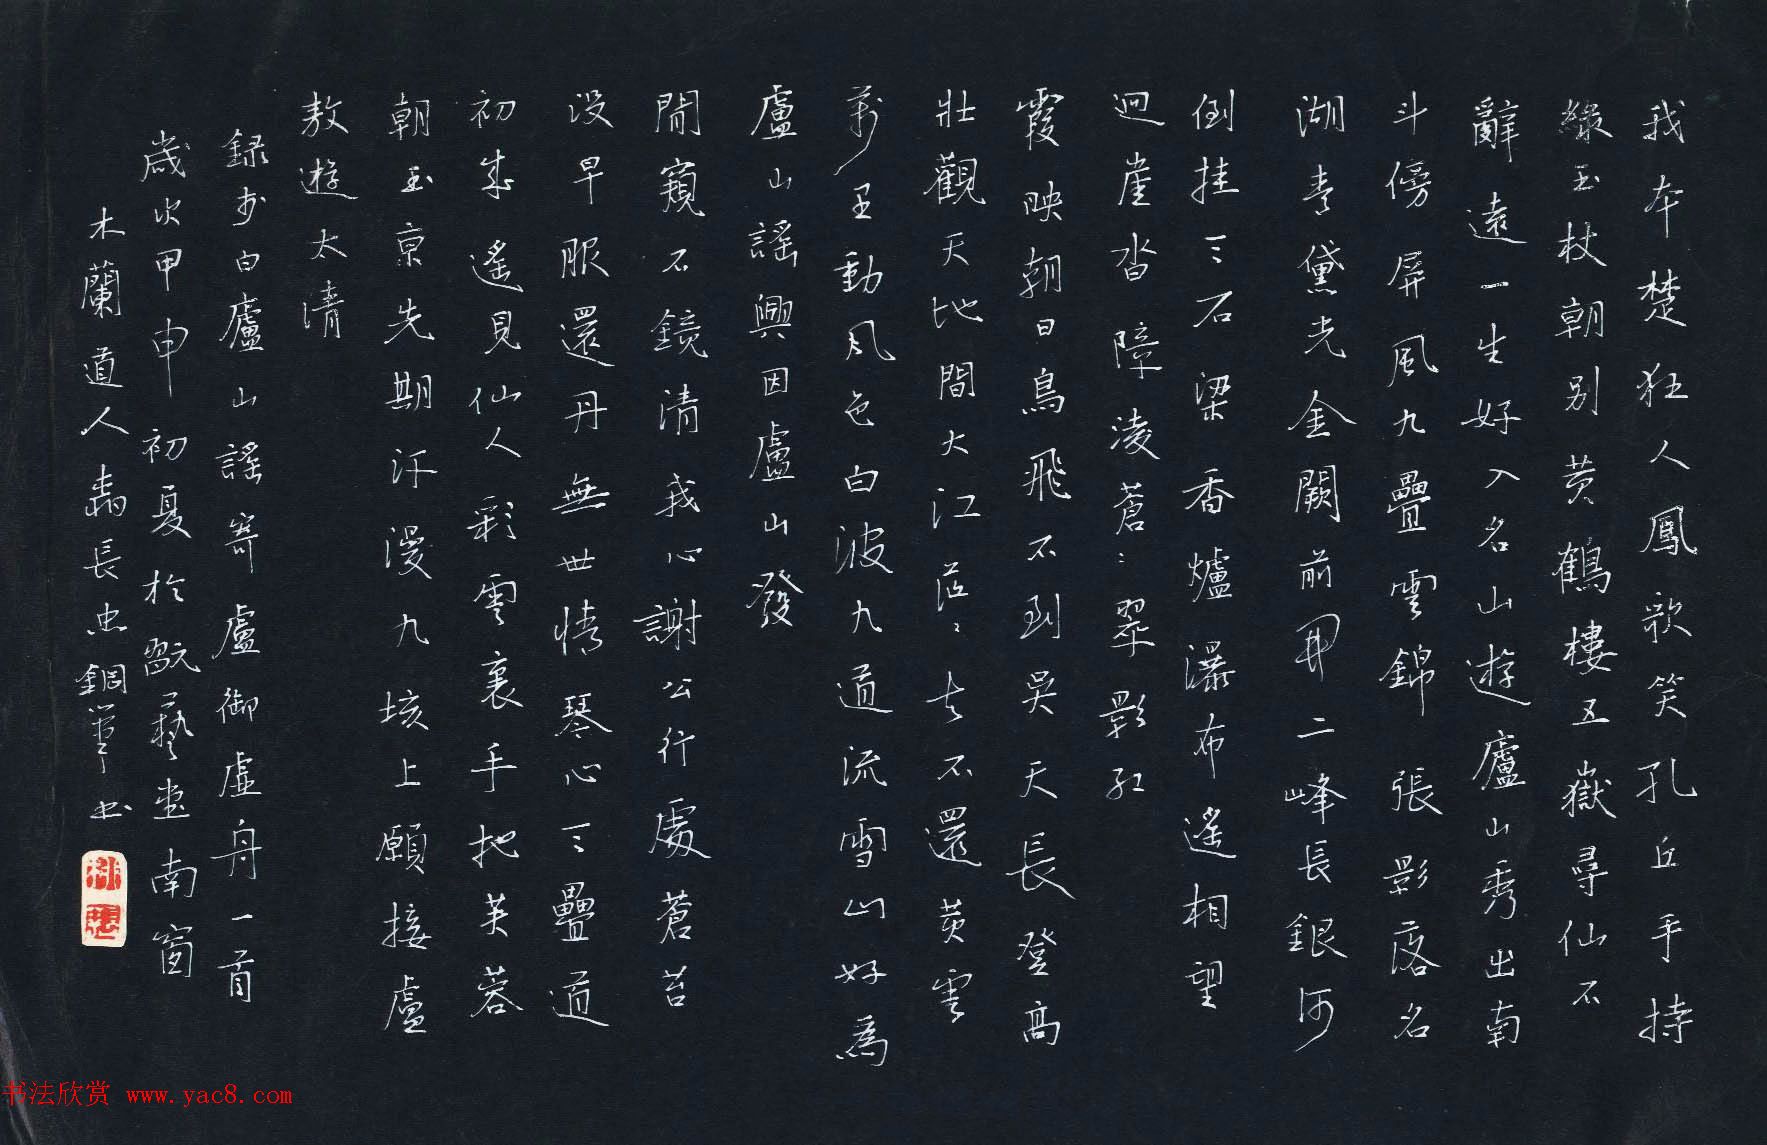 我本楚狂人鳳歌笑孔丘手持
綠玉杖朝別黃鶴樓五嶽尋仙不
辭遠一生好入名山遊廬山秀出南
斗傍屏風九疊雲錦張影落名
湖青黛光金闕前開二峰長銀河
倒挂三石梁香爐瀑布遙相望
迴崖沓障淩蒼〻翠影紅
霞映朝日鳥飛不到吳天長登高
壯觀天地間大江茫〻去不還黃雲
萬里動風色白波九道流雪山好為
盧山謠興因盧山發
閒窺石鏡清我心謝公行處蒼苔
沒早服還丹無世情琴心三疊道
初成遙見仙人彩雲裏手把芙蓉
朝玉京先期汗漫九垓上願接盧
敖遊太清
錄李白廬山謠寄盧御虛舟一首
歲次甲申初夏於翫藝壺南窗
木蘭道人 長忠鋼筆書
书法欣赏 www.yac8.com